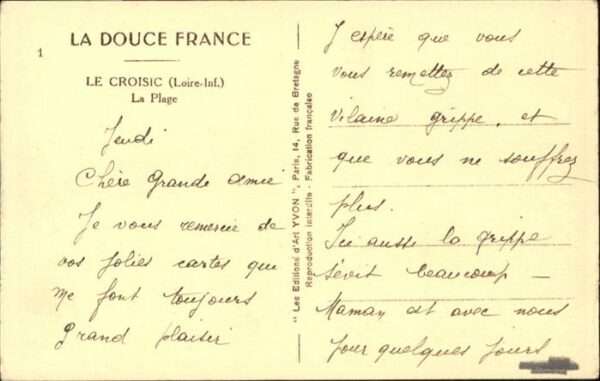 1
LA DOUCE FRANCE
LE CROISIC (Loire-Inf.)
La Plage
Jeudi
Chère Grande Amie
Je vous remercie de
vos jolies cartes qui
me font toujours
grand plaisir
"Les Editions d'Art YVON", Paris, 14, Rue de Bretagne
Reproduction interdite - Fabrication française
J'espère que vous
vous remettez de cette
vilaine grippe, et
que vous ne souffrez
plus.
Ici aussi la grippe
sévit beaucoup —
Maman est avec nous
pour quelques jours